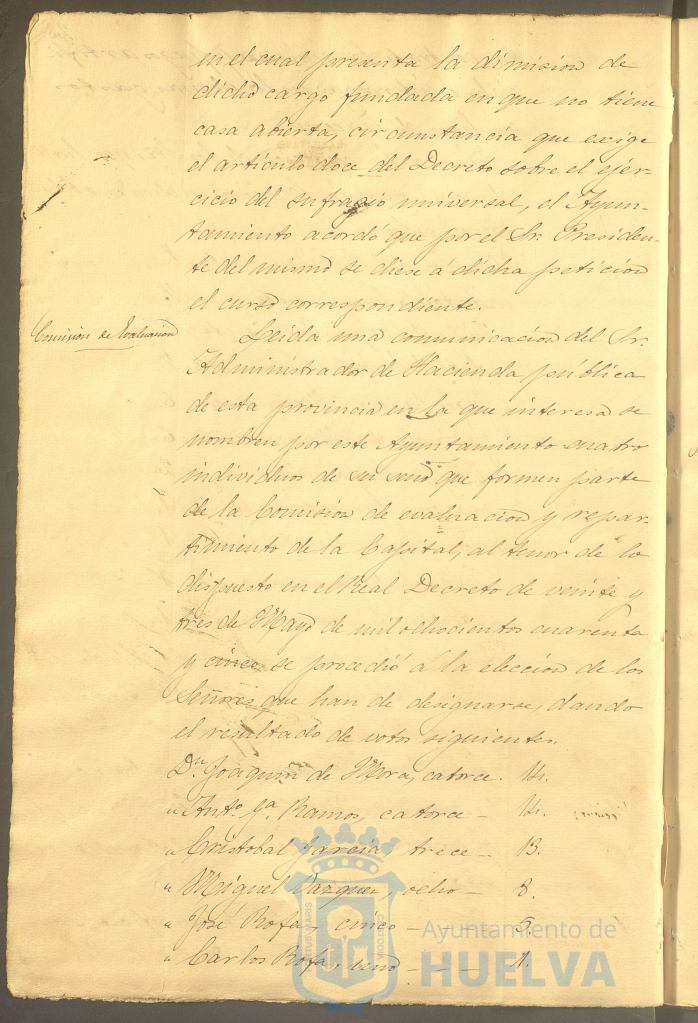 en el cual presenta la dimision de
dicho cargo fundada en que no tiene
casa abierta, circunstancia que exige
el artículo doce del Decreto sobre el ejer-
cicio del sufragio universal, el Ayun-
tamiento acordó que por el Sr. Presiden-
te del mismo se diese á dicha peticion
el curso correspondiente.
Comision de Evaluacion
Leida una comunicacion del Sr.
Administrador de Hacienda pública
de esta provincia en la que interesa se
nombren por este Ayuntamiento cuatro
individuos de su seno que formen parte
de la Comision de evaluacion y repar-
timiento de la Capital, al tenor de lo
dispuesto en el Real Decreto de veinte y
tres de Mayo de mil ochocientos cuarenta
y cinco se procedió á la eleccion de los
Señores que han de designarse, dando
el resultado de votos siguientes.
Dn. Joaquin de Mora, catorce. 14.
" Anto. Ga. Ramos, catorce - 14.
" Cristobal Garcia, trece - 13.
" Miguel Vazquez, ocho - 8.
" José Rofa, cinco - 5.
" Carlos Rofa, uno - - - 1.
Ayuntamiento de
HUELVA